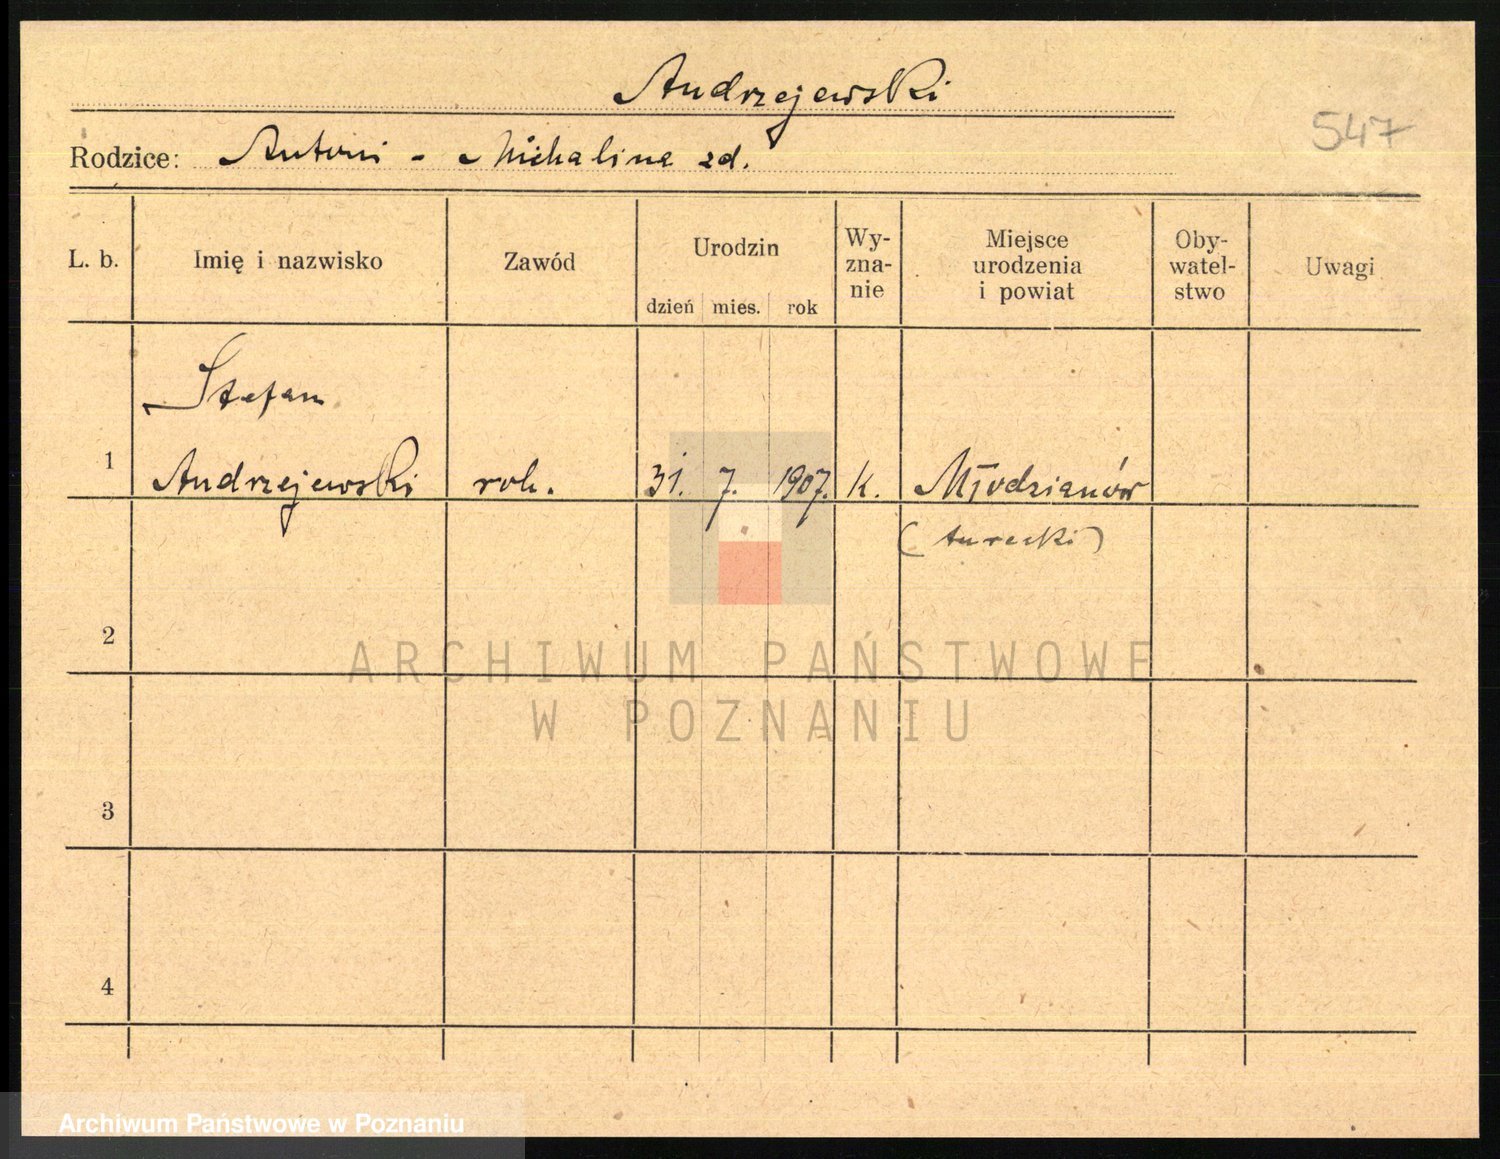 Andrzejewski
547
Rodzice: Antoni - Michalina zd.
L. b. Imię i nazwisko Zawód Urodzin dzień mies. rok Wy-zna-nie Miejsce urodzenia i powiat Oby-watel-stwo Uwagi
Stefan
1 Andrzejewski rob. 31. 7. 1907. K. Młodzianów
(turecki)
2
ARCHIWUM PAŃSTWOWE
W POZNANIU
3
4
Archiwum Państwowe w Poznaniu